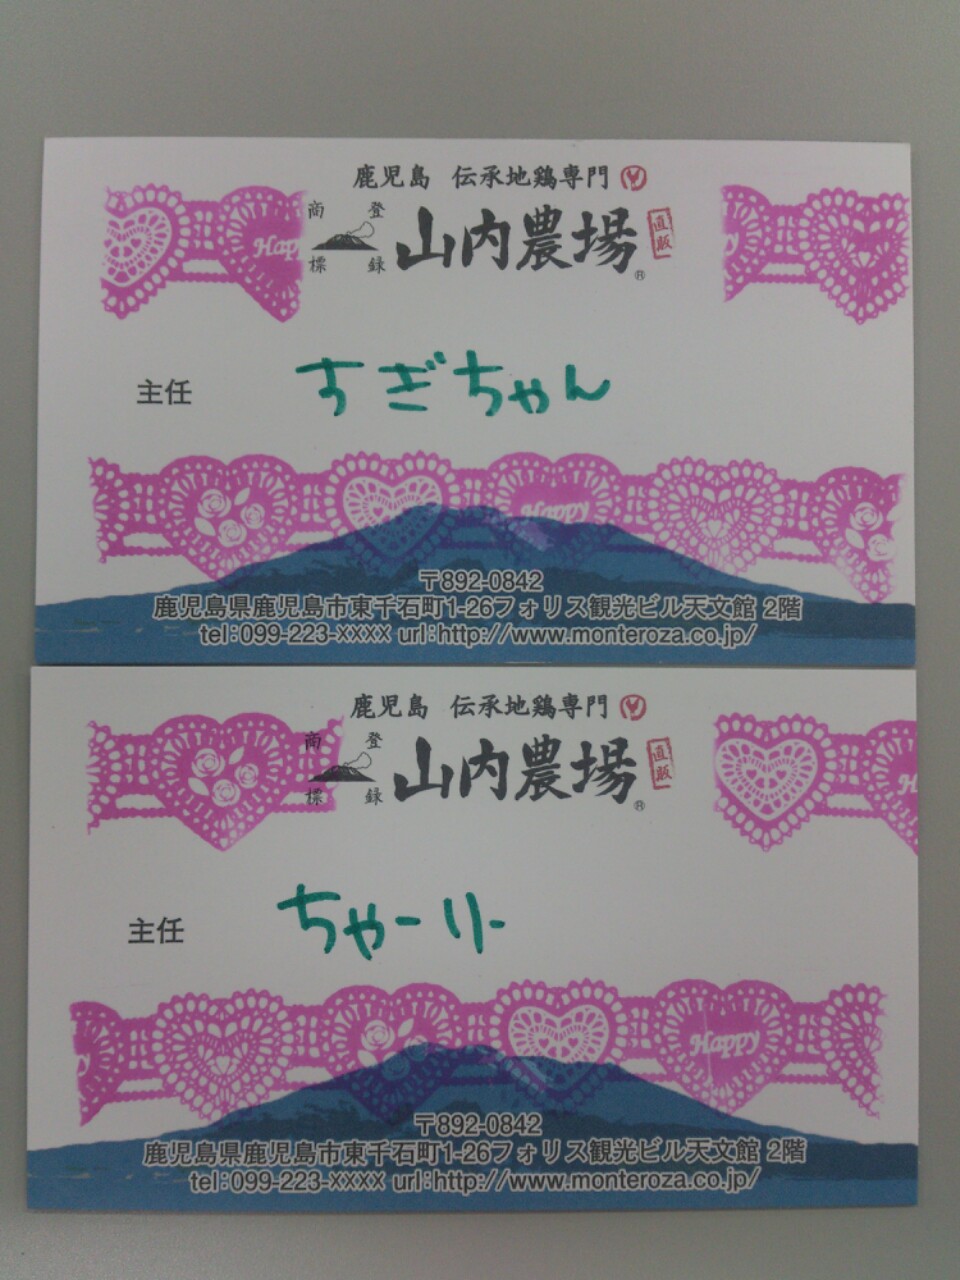 鹿児島 伝承地鶏専門
商標 登録 山内農場 直販 ®
Happ
主任 すぎちゃん
Happy
〒892-0842
鹿児島県鹿児島市東千石町1-26フォリス観光ビル天文館 2階
tel:099-223-xxxx url:http://www.monteroza.co.jp/
鹿児島 伝承地鶏専門
商標 登録 山内農場 直販 ®
主任 ちゃーりー
Happy
〒892-0842
鹿児島県鹿児島市東千石町1-26フォリス観光ビル天文館 2階
tel:099-223-xxxx url:http://www.monteroza.co.jp/